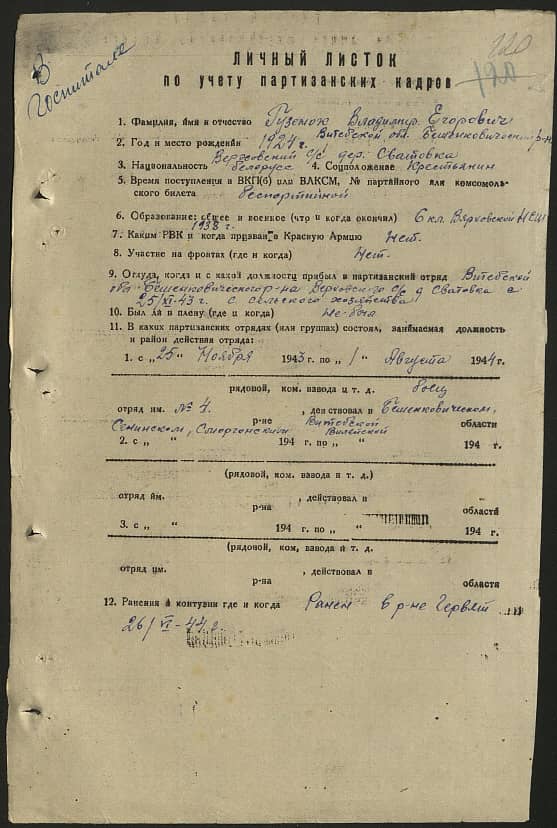 В госпитале
120
120
ЛИЧНЫЙ ЛИСТОК
по учету партизанских кадров
1. Фамилия, имя и отчество Гузенок Владимир Егорович
2. Год и место рождения 1924 г. Витебской обл. Бешенковический р-н
Верховский с/с дер. Сватовка
3. Национальность белорус 4. Соцположение Крестьянин
5. Время поступления в ВКП(б) или ВЛКСМ, № партийного или комсомоль-
ского билета беспартийной
6. Образование: общее и военное (что и когда окончил) 6 кл. Верховской НСШ
1938 г.
7. Каким РВК и когда призван в Красную Армию Нет.
8. Участие на фронтах (где и когда) Нет.
9. Откуда, когда и с какой должности прибыл в партизанский отряд Витебской
обл Бешенковического р-на Верховского с/с д Сватовка
25/XI-43 г. с сельского хозяйства
10. Был ли в плену (где и когда) не был
11. В каких партизанских отрядах (или группах) состоял, занимаемая должность
и район действия отряда:
1. с „25" Ноября 1943 г. по „1" Августа 1944 г.
рядовой, ком. взвода и т. д. боец
отряд им. № 4. , действовал в Бешенковическом,
Сенинском, Сморгонским р-не Витебской Вилейской области
2. с „ " 194 г. по „ " 194 г.
(рядовой, ком. взвода и т. д.)
отряд им. , действовал в
р-на области
3. с „ " 194 г. по „ " 194 г.
(рядовой, ком, взвода и т. д.
отряд им. , действовал в
р-на области
12. Ранения и контузии где и когда Ранен в р-не Гервят
26/VI-44 г.